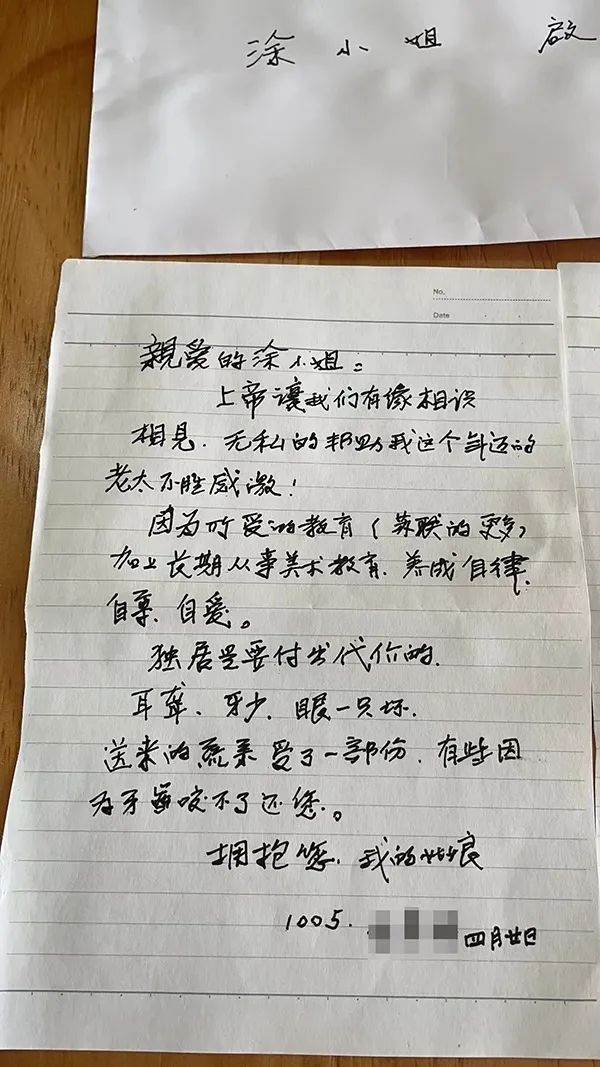 涂小姐 啟
No.
Date
親爱的涂小姐：
上帝讓我们有缘相识
相見．无私的帮助我这个年迈的
老太不胜感激！
因为所受的教育（苏联的更多）
加上长期从事美术教育．养成自律．
自尊．自爱。
独居是要付出代价的．
耳聋．牙少．眼一只坏．
送来的蔬菜受了一部份．有些因
为牙齒咬不了还您。
拥抱您．我的姑娘
1005.
四月廿日